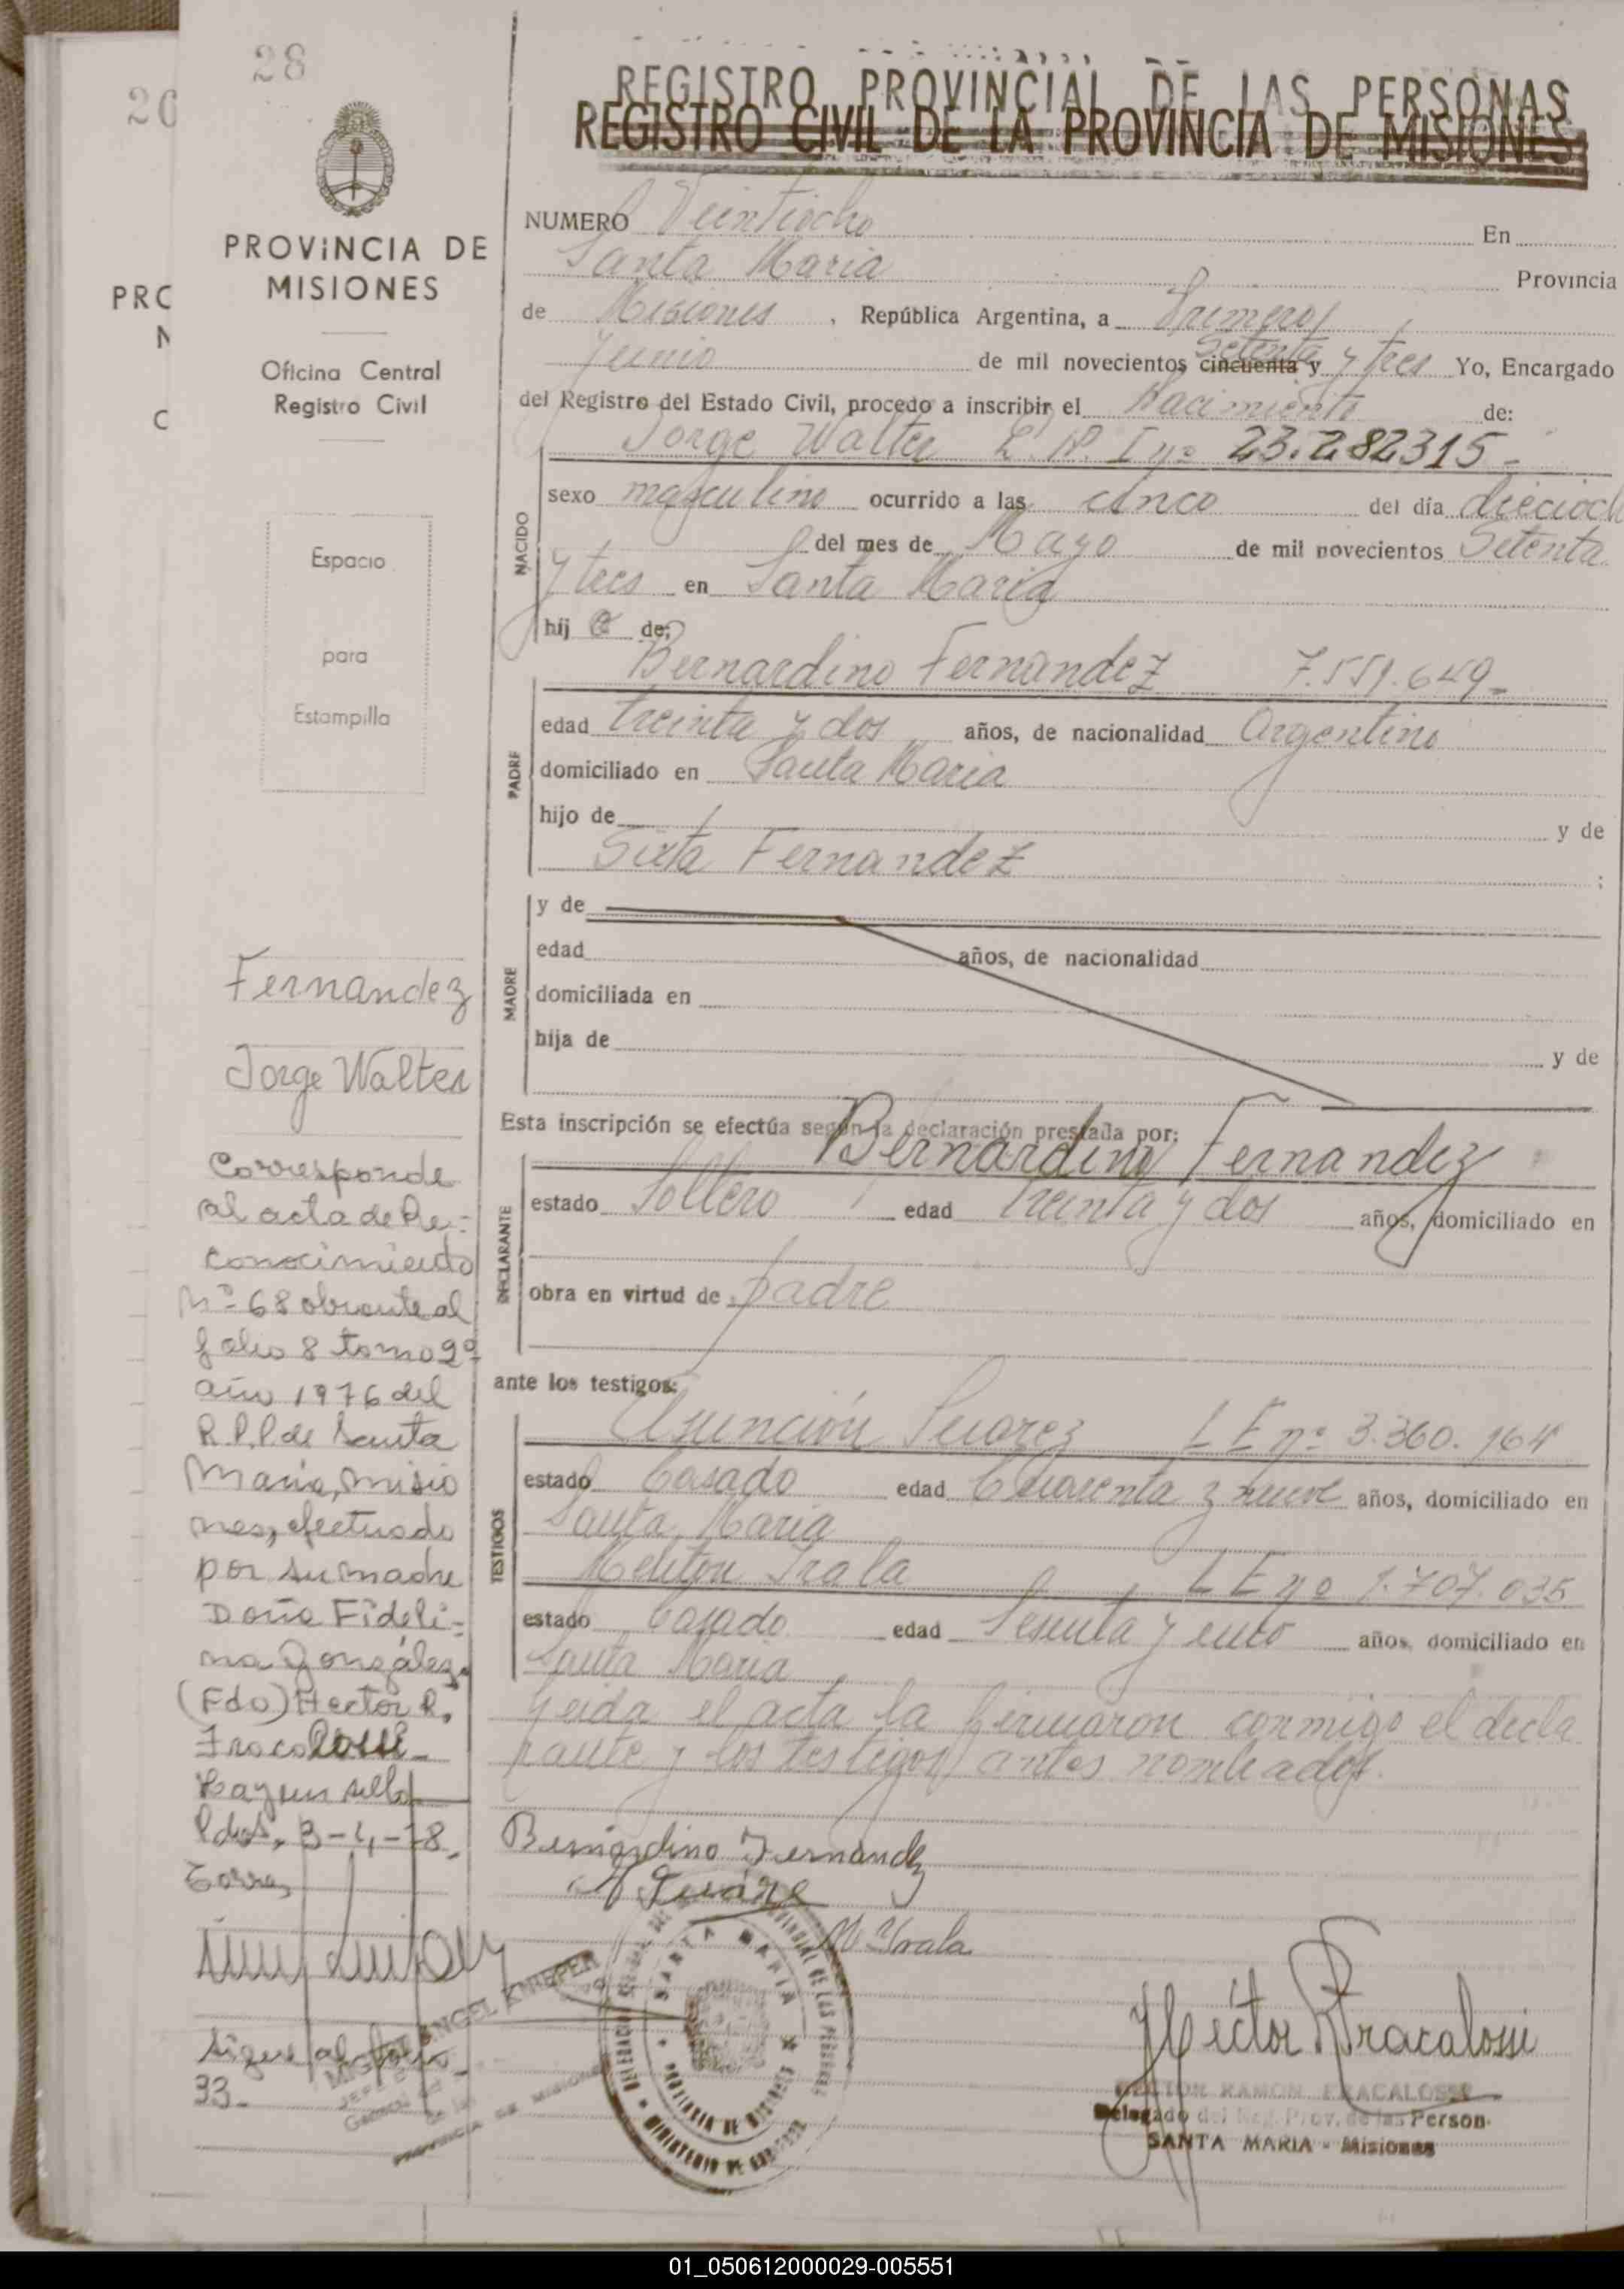 28
20
PROVINCIA DE
MISIONES
Oficina Central
Registro Civil
Espacio
para
Estampilla
PRO
C
REGISTRO PROVINCIAL DE LAS PERSONAS
REGISTRO CIVIL DE LA PROVINCIA DE MISIONES
NUMERO Veintiocho En
Santa Maria Provincia
de Misiones, República Argentina, a Primero
Junio de mil novecientos cincuenta y Setenta y tres Yo, Encargado
del Registro del Estado Civil, procedo a inscribir el Nacimiento de:
Jorge Walter L.M.I nº 23.282315-
NACIDO
sexo masculino ocurrido a las cinco del día diecioch
del mes de Mayo de mil novecientos Setenta
y tres en Santa Maria
hij o de:
Bernardino Fernandez 7.551.649-
PADRE
edad treinta y dos años, de nacionalidad Argentino
domiciliado en Santa Maria
hijo de y de
Sixta Fernandez ;
MADRE
y de
edad años, de nacionalidad
domiciliada en
hija de y de
Esta inscripción se efectúa según la declaración prestada por:
Bernardino Fernandez
DECLARANTE
estado Soltero edad treinta y dos años, domiciliado en
obra en virtud de padre
ante los testigos:
TESTIGOS
Asunción Suarez L E nº 3.360.164
estado Casado edad Cuarenta y nueve años, domiciliado en
Santa Maria
Meliton Irala L E nº 1.707.035
estado Casado edad Sesenta y años, domiciliado en
Santa Maria
Leida el acta la firmaron conmigo el decla
rante y los testigos antes nombrados.
Bernardino Fernandez
M Irala
Hector R Fracalossi
HECTOR RAMON FRACALOSSI
Delegado del Reg. Prov. de las Person.
SANTA MARIA - Misiones
SANTA MARIA
MINISTERIO DE GOBIERNO
Fernandez
Jorge Walter
Corresponde
al acta de Re-
conocimiento
Nº 68 obrante al
folio 8 tomo 2º
año 1976 del
R.P.P. de Santa
Maria, Misio
nes, efectuado
por su madre
Doña Fideli-
na González.
(Fdo) Hector R.
Fracalossi-
Hay un sello
Pdas. 3-4-78.
Sigue al folio
33-
MIGUEL ANGEL KNIEPER
PROVINCIA DE MISIONES
01_050612000029-005551